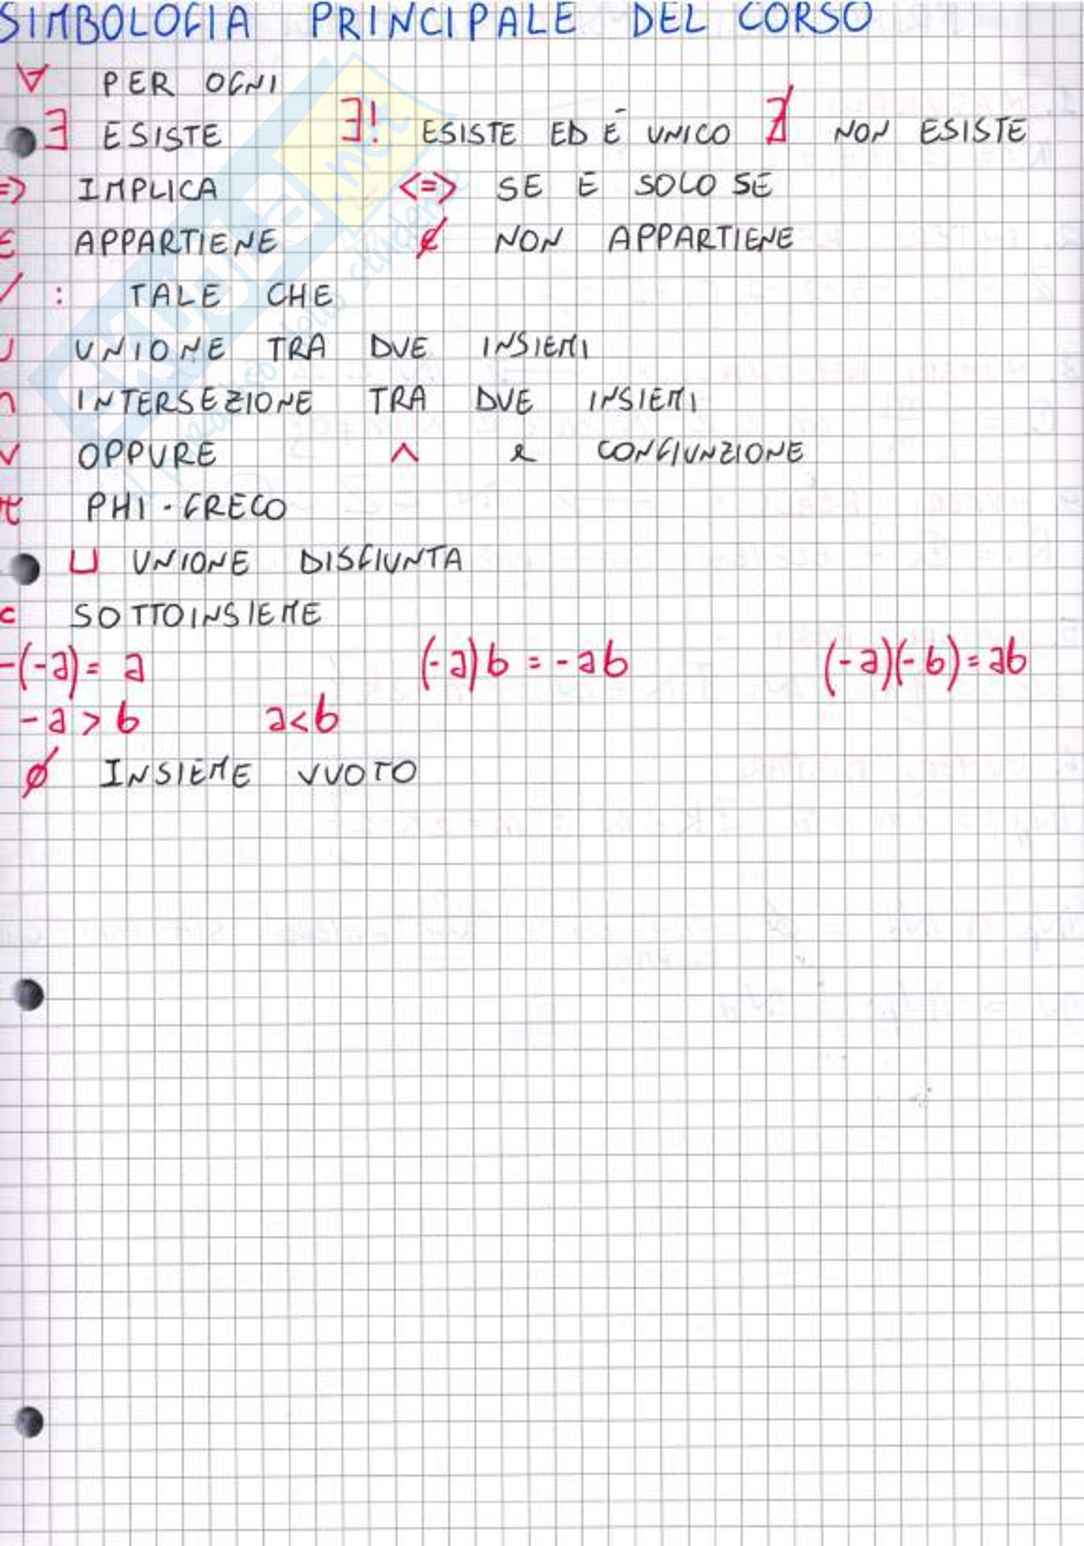 SIMBOLOGIA PRINCIPALE DEL CORSO
∀ PER OGNI
∃ ESISTE ∃! ESISTE ED É UNICO ∄ NON ESISTE
=> IMPLICA <=> SE E SOLO SE
∈ APPARTIENE ∉ NON APPARTIENE
/ : TALE CHE
∪ UNIONE TRA DUE INSIEMI
∩ INTERSEZIONE TRA DUE INSIEMI
∨ OPPURE ∧ e CONGIUNZIONE
π PHI-GRECO
⊔ UNIONE DISGIUNTA
⊂ SOTTOINSIEME
-(-a)= a (-a)b = -ab (-a)(-b)=ab
-a > b a<b
∅ INSIEME VUOTO